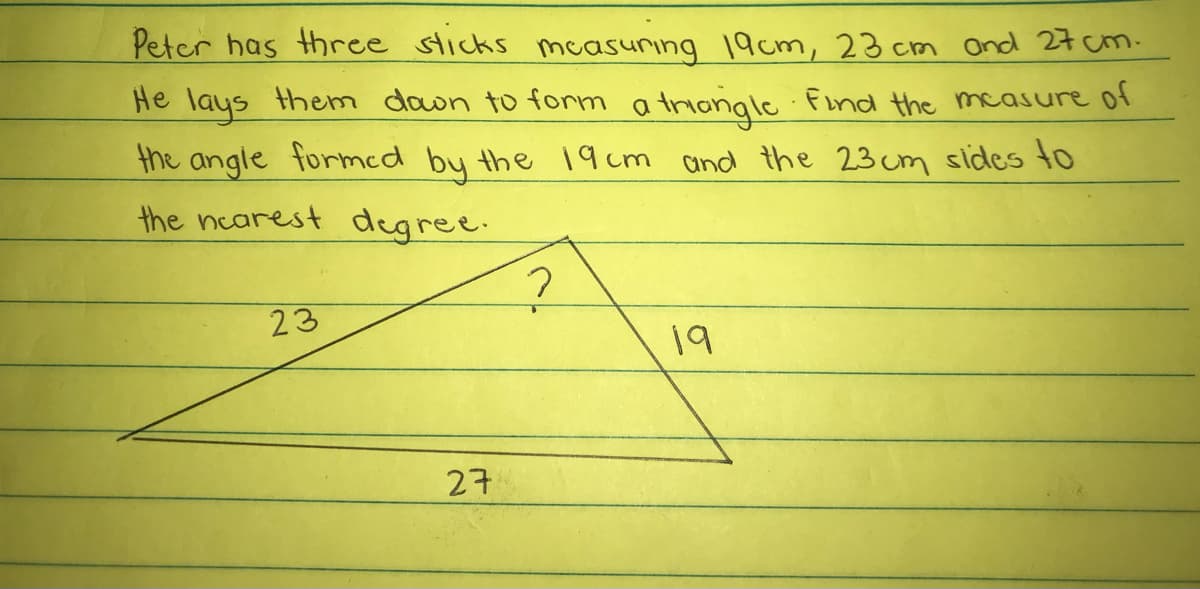 Peter has three sticks measuring 19cm, 23 cm and 27 cm.
He lays them down to form a triangle. Find the measure of
the angle formed by the 19 cm and the 23 cm sides to
the nearest degree.
?
23
19
27